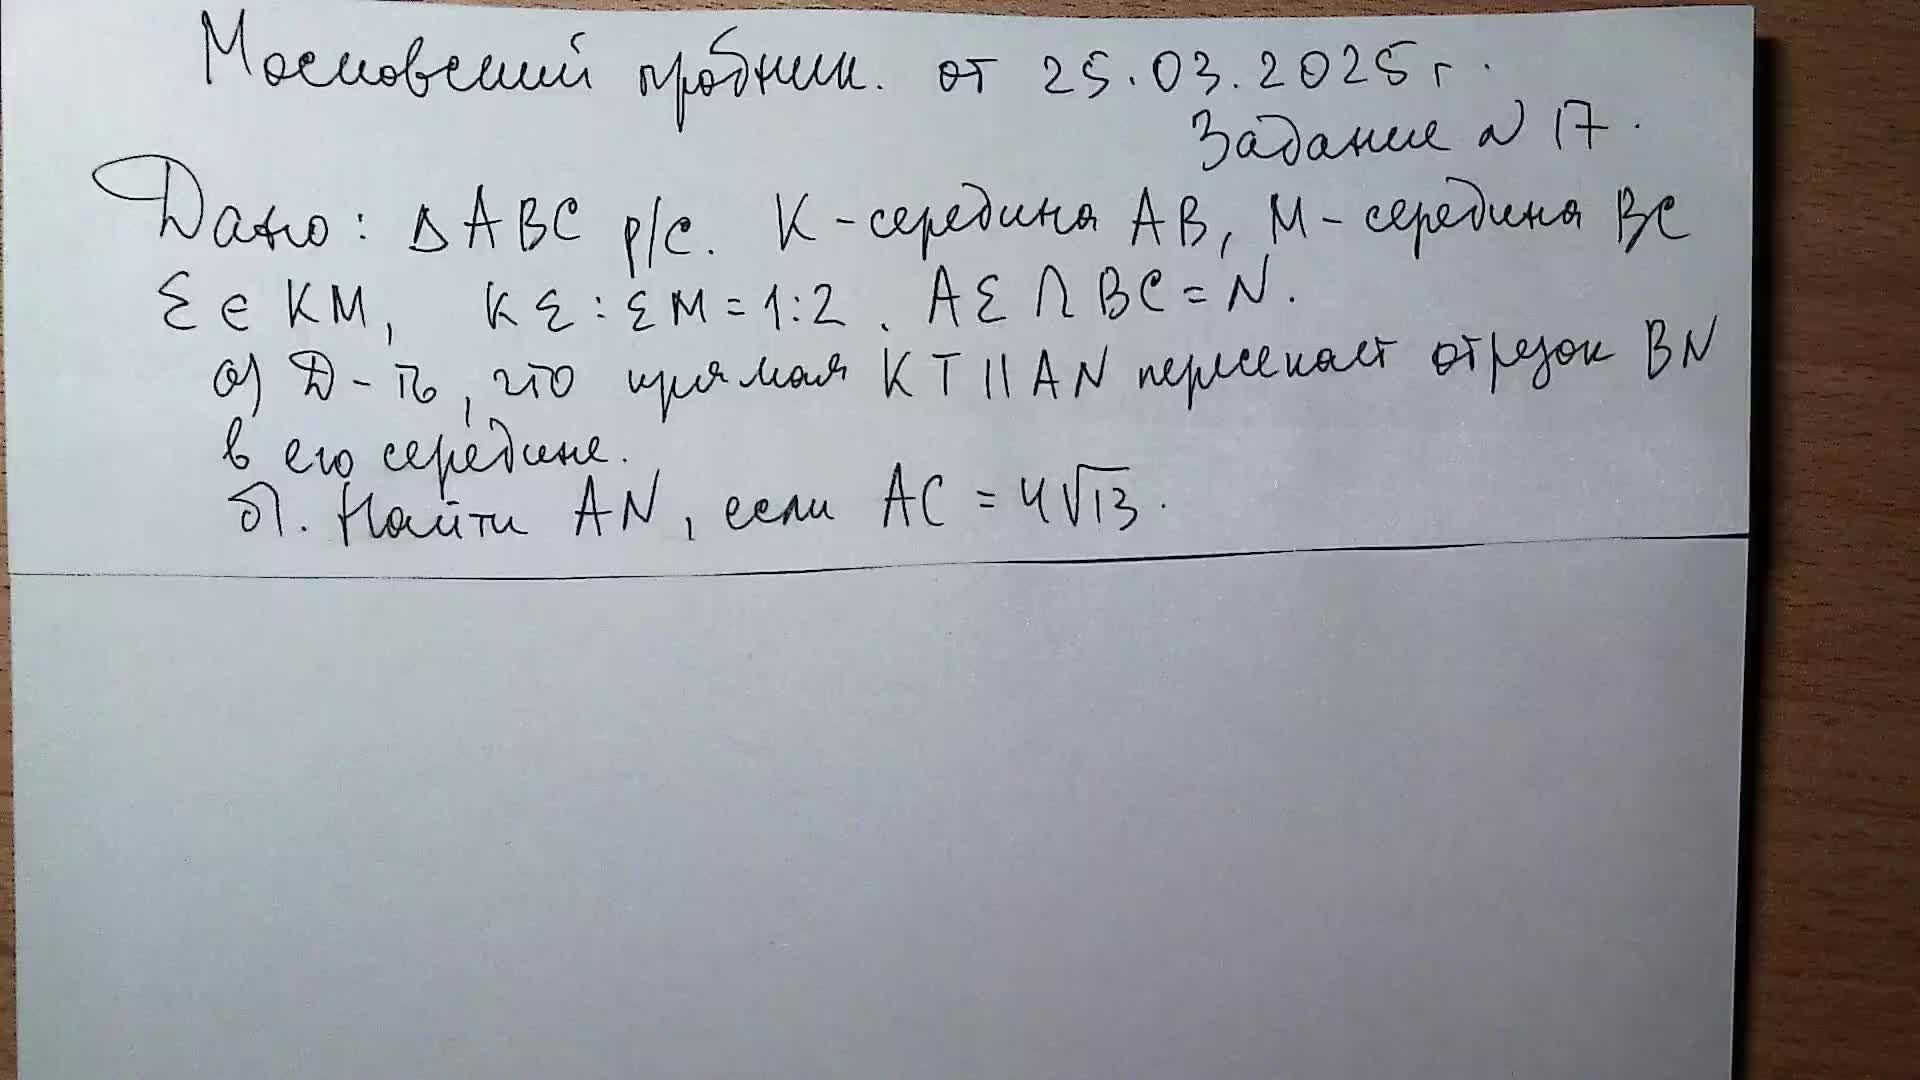 Московский пробник. от 25.03.2025 г.
Задание N 17.
Дано: Δ ABC р/с. K - середина AB, M - середина BC
E ∈ KM, KE : EM = 1:2. AE ∩ BC = N.
а) Д-ть, что прямая KT || AN пересекает отрезок BN
в его середине.
б). Найти AN, если AC = 4√13.